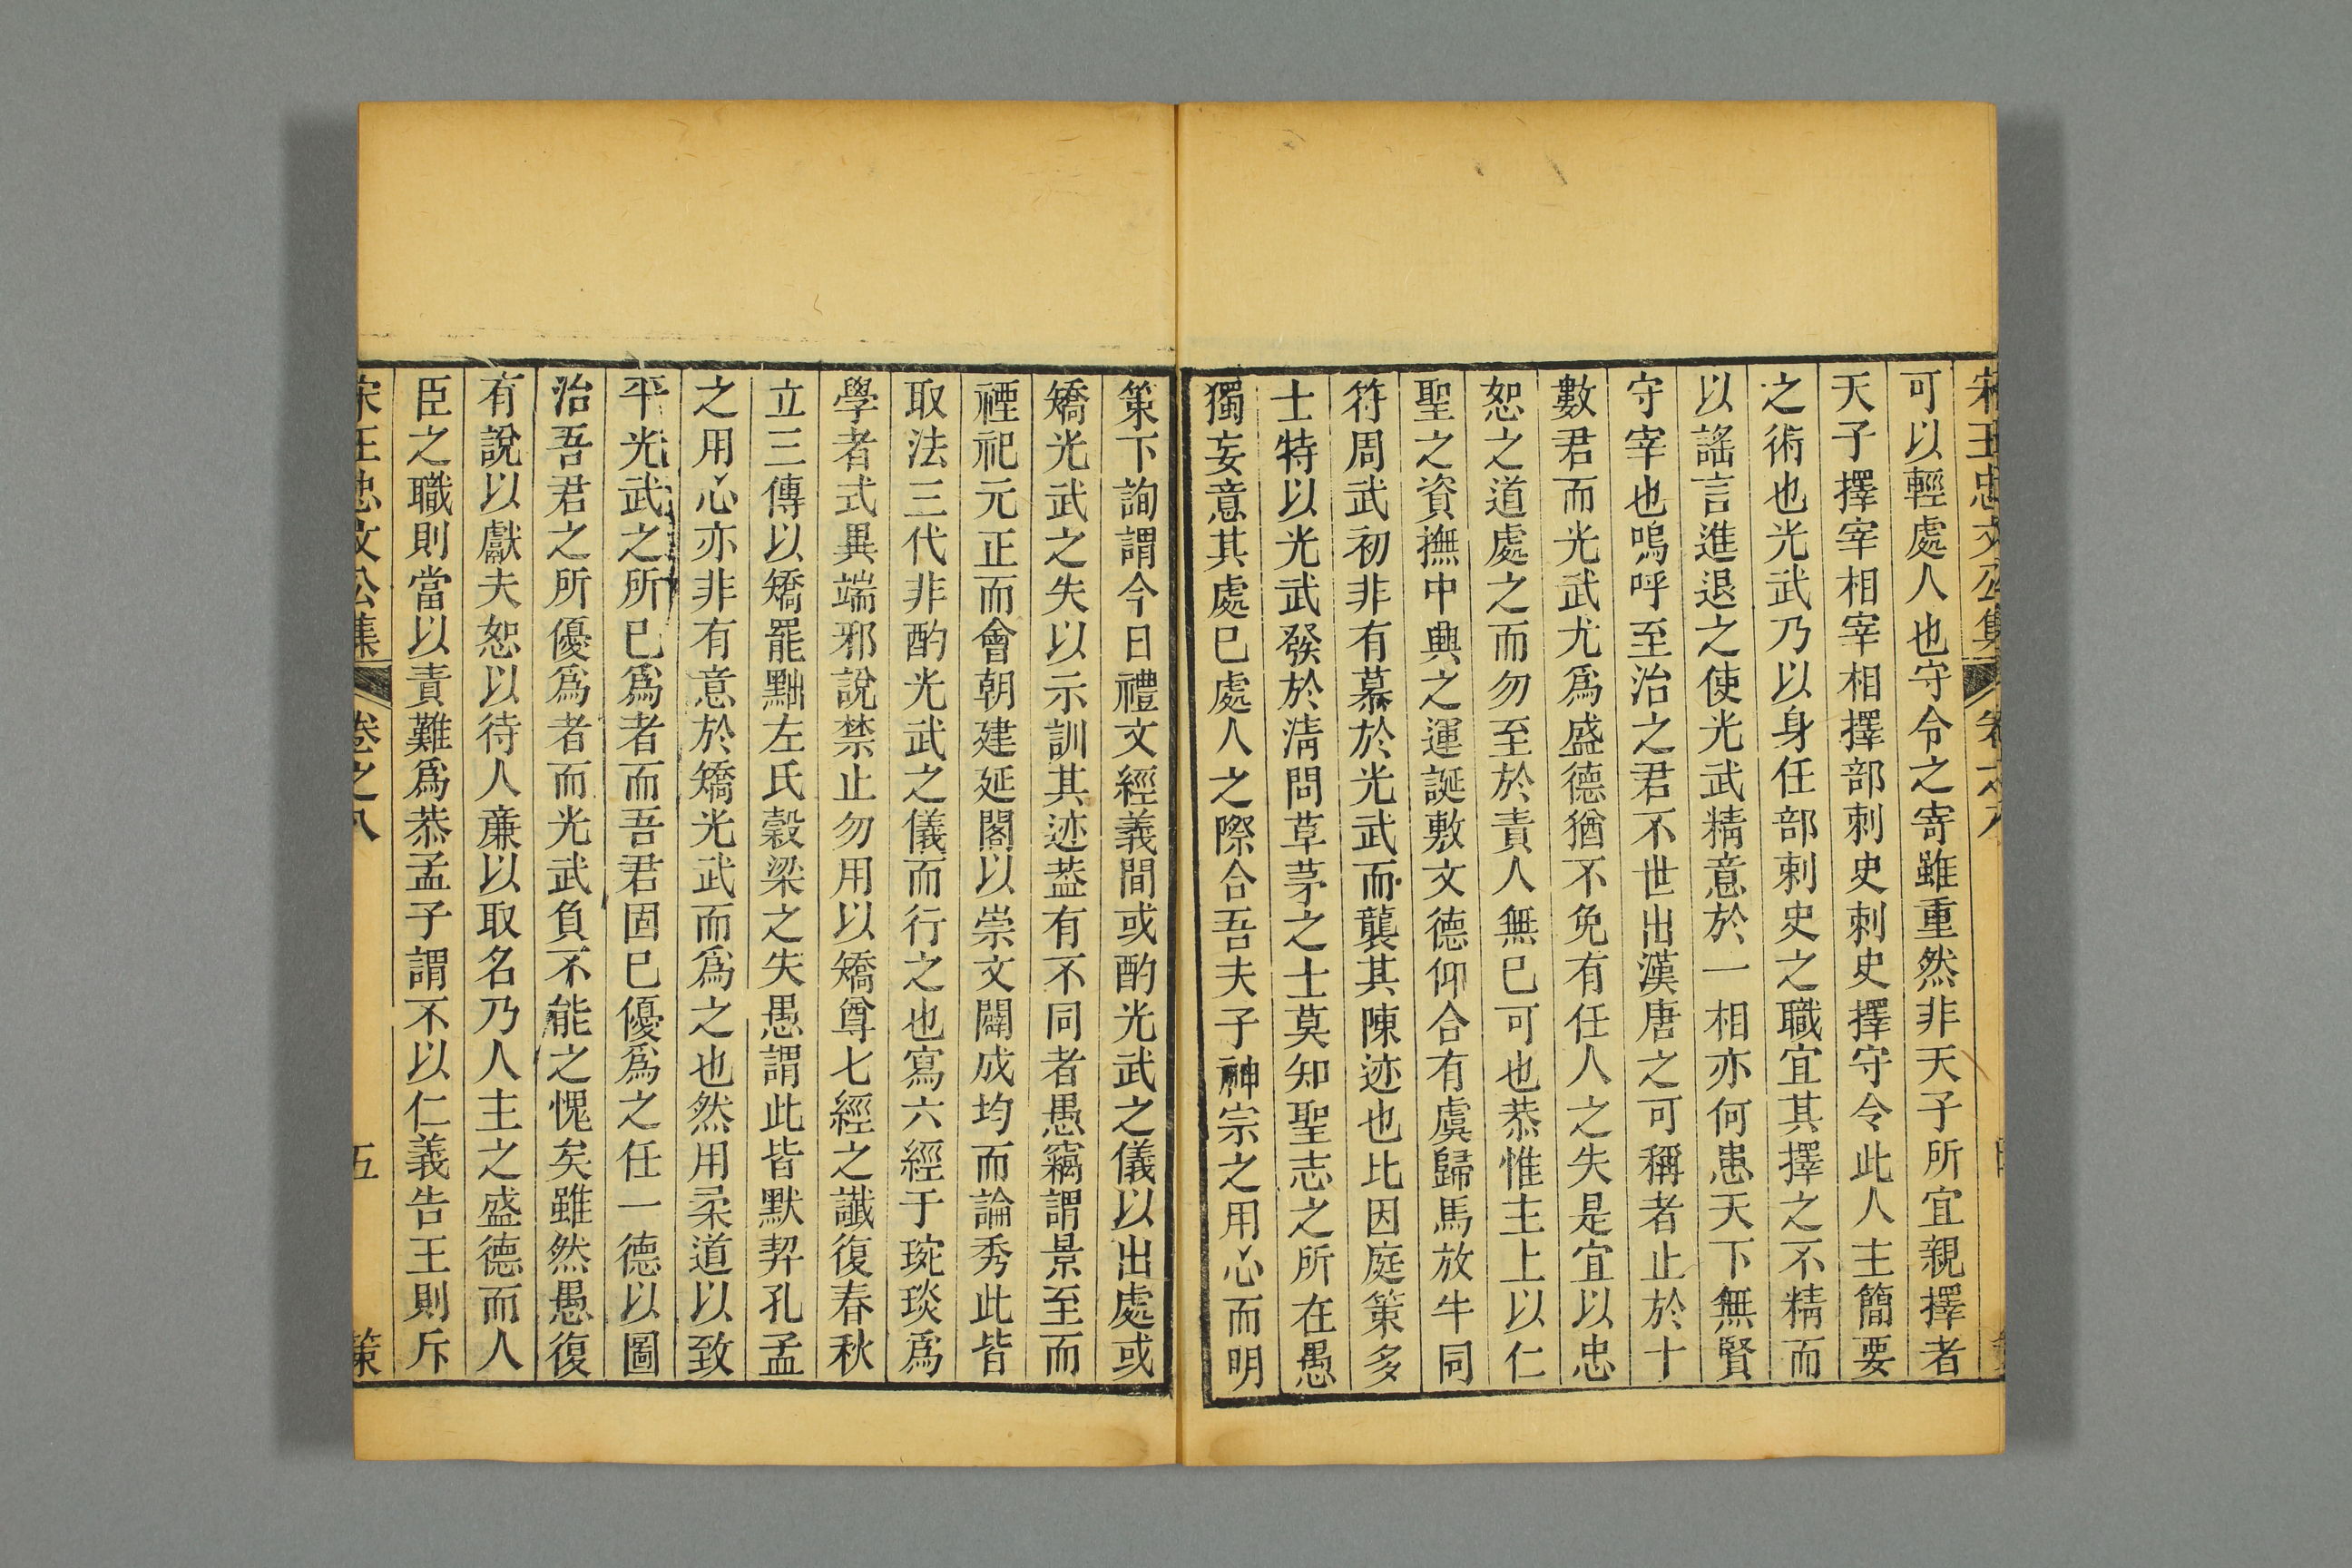 宋王忠文公集 卷之八 策
可以輕處人也守令之寄雖重然非天子所宜親擇者
天子擇宰相宰相擇部刺史刺史擇守令此人主簡要
之術也光武乃以身任部刺史之職宜其擇之不精而
以謠言進退之使光武精意於一相亦何患天下無賢
守宰也嗚呼至治之君不世出漢唐之可稱者止於十
數君而光武尤爲盛德猶不免有任人之失是宜以忠
恕之道處之而勿至於責人無已可也恭惟主上以仁
聖之資撫中興之運誕敷文德仰合有虞歸馬放牛同
符周武初非有慕於光武而襲其陳迹也比因庭策多
士特以光武發於清問草茅之士莫知聖志之所在愚
獨妄意其處已處人之際合吾夫子神宗之用心而明
策下詢謂今日禮文經義間或酌光武之儀以出處或
矯光武之失以示訓其迹葢有不同者愚竊謂景至而
禋祀元正而會朝建延閣以崇文闢成均而論秀此皆
取法三代非酌光武之儀而行之也寫六經于琬琰爲
學者式異端邪說禁止勿用以矯尊七經之讖復春秋
立三傳以矯罷黜左氏穀梁之失愚謂此皆默契孔孟
之用心亦非有意於矯光武而爲之也然用柔道以致
平光武之所已爲者而吾君固已優爲之任一德以圖
治吾君之所優爲者而光武負不能之愧矣雖然愚復
有說以獻夫恕以待人亷以取名乃人主之盛德而人
臣之職則當以責難爲恭孟子謂不以仁義告王則斥
宋王忠文公集 卷之八 五 策